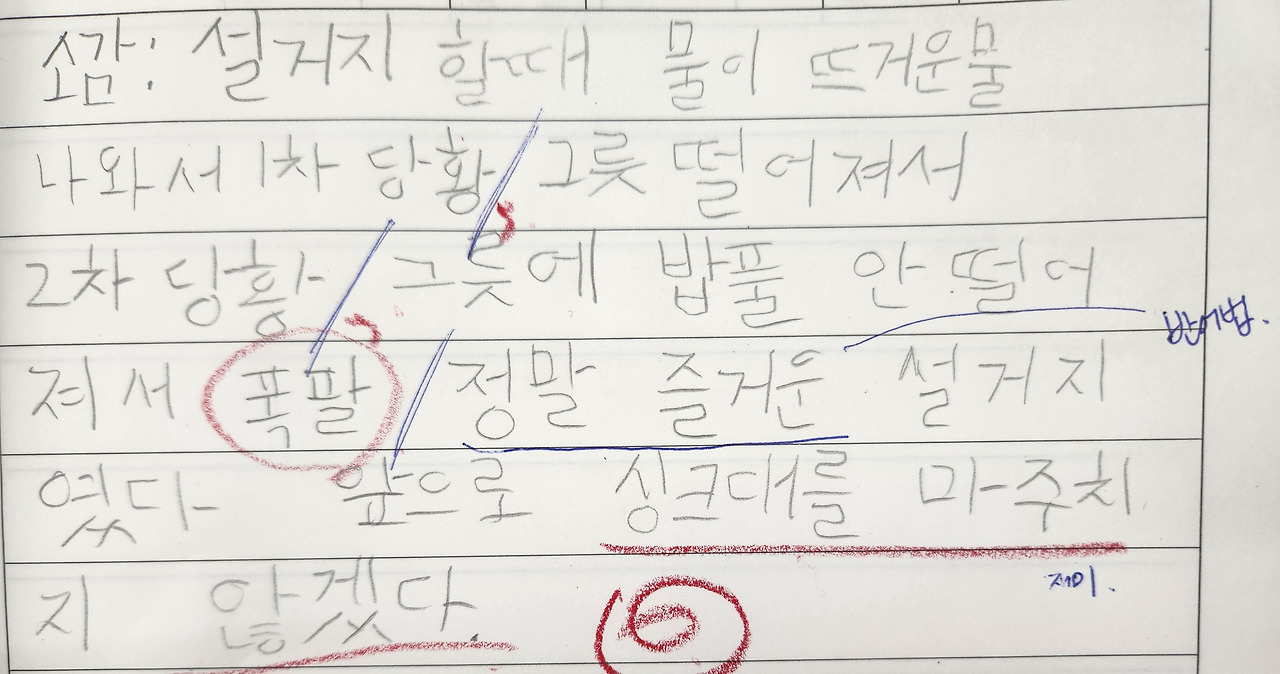 소감: 설거지 할때 물이 뜨거운물
나와서 1차 당황 그릇 떨어져서
2차 당황 그릇에 밥풀 안 떨어
반어법.
져서 폭팔 정말 즐거운 설거지
였다 앞으로 싱크대를 마주치
재미.
지 않겠다.